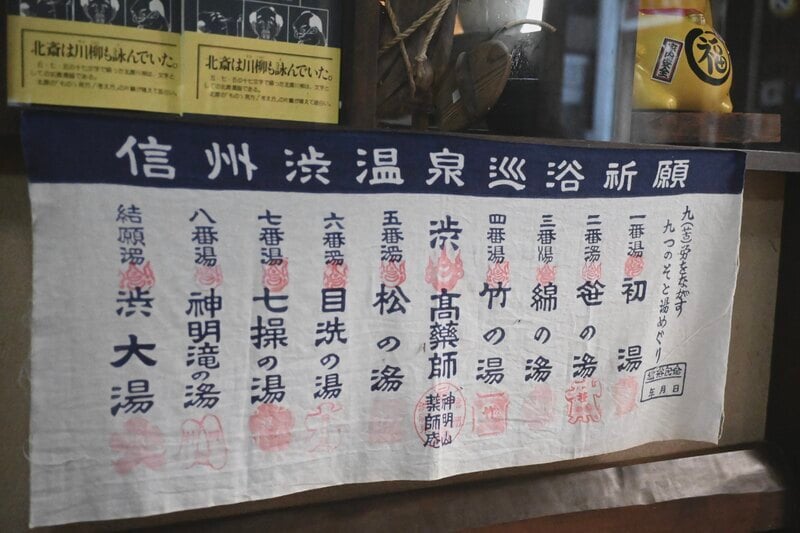 北斎は川柳も詠んでいた。
北斎は川柳も詠んでいた。
福
信州渋温泉巡浴祈願
九(苦)労をながす
九つのそと湯めぐり
年月日
一番湯 初湯
二番湯 笹の湯
三番湯 綿の湯
四番湯 竹の湯
渋 高薬師
神明山
薬師庵
五番湯 松の湯
六番湯 目洗の湯
七番湯 七操の湯
八番湯 神明滝の湯
結願湯 渋大湯